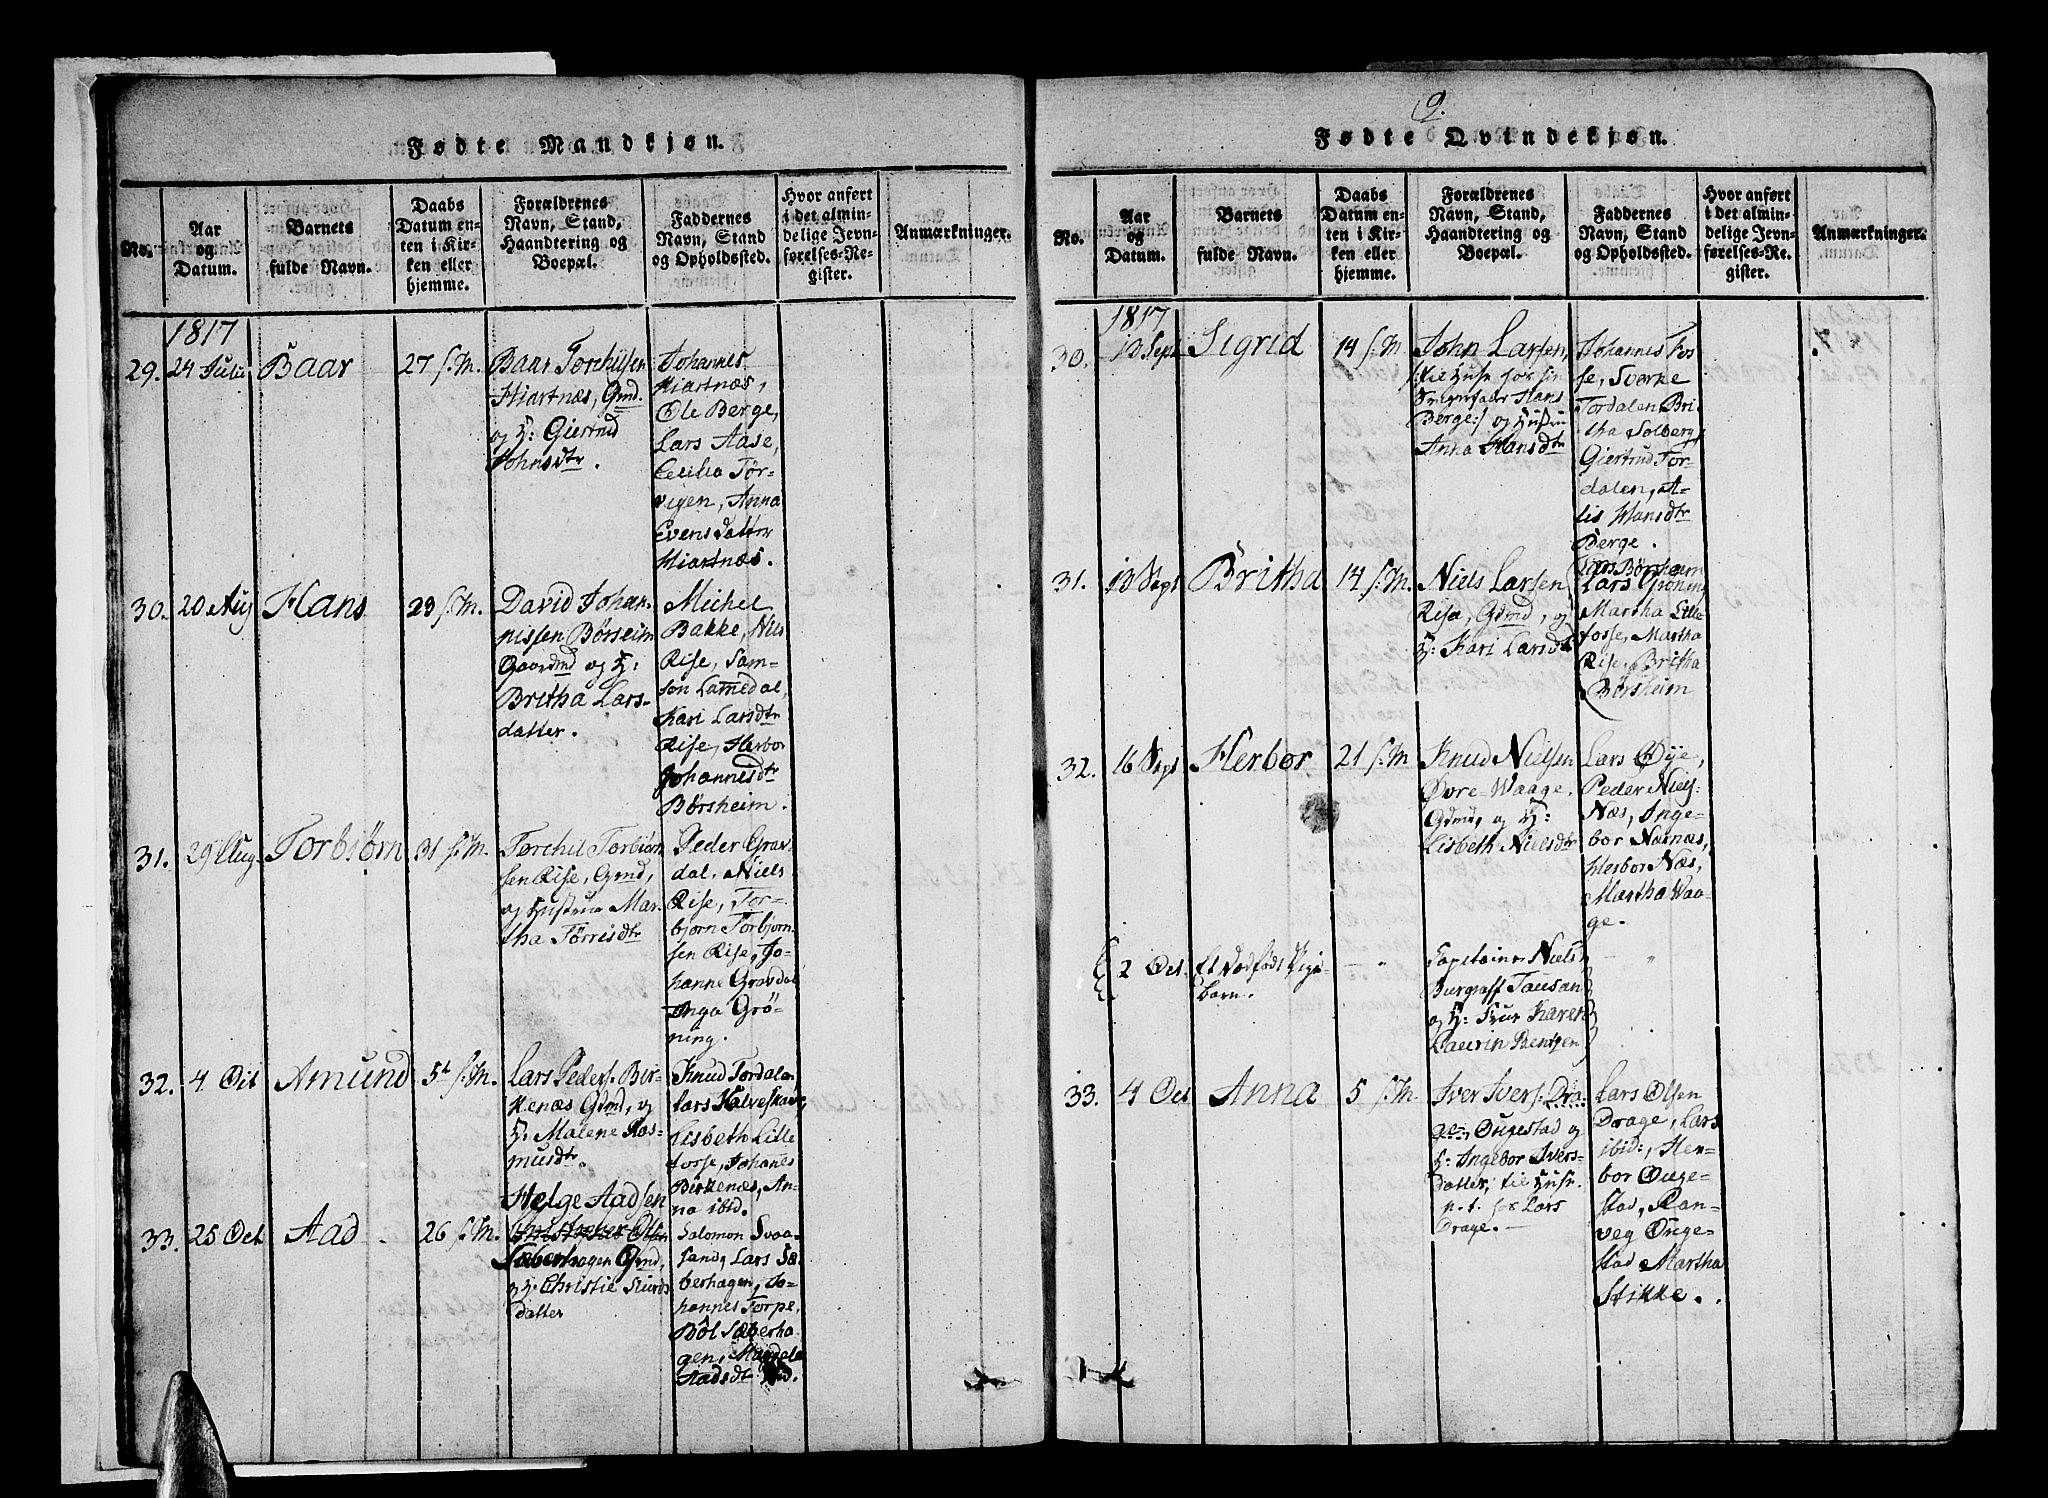 Fødte Mandkjøn.
No.
Aar
og
Datum.
Barnets
fulde Navn.
Daabs
Datum en-
ten i Kir-
ken eller
hjemme.
Forældrenes
Navn, Stand,
Haandtering og
Boepæl.
Faddernes
Navn, Stand
og Opholdssted.
Hvor anført
i det almin-
delige Jevn-
førelses-Re-
gister.
Anmærkninger.
1817
29.
24 Juli
Baar
27 s. M.
Baar Torchilsen
Hiartnæs, Gmd.
og H: Giertrud
Johnsdtr.
Johannes
Hiartnæs,
Ole Berge,
Lars Aase,
Cecilia Tør-
vigen, Anna
Evensdatter
Hiartnæs.
30.
20 Aug
Hans
23 s. M.
David Johan-
nissen Børseim
Gaardmd og H:
Britha Lars-
datter.
Michel
Bakke, Niels
Rise, Sam-
son Lamedal,
Kari Larsdtr
Rise, Herbor
Johannesdtr
Børsheim.
31.
29 Aug.
Torbjørn
31 s. M.
Torchil Torbiørn
sen Rise, Gmd,
og Hustrue Mar-
tha Tørrisdtr
Peder Grav-
dal, Niels
Rise, Tor-
bjørn Torbjørn-
sen Rise, Jo-
hanne Gravdal
Inga Grø-
ning.
32.
4. Oct
Amund
5t s. M.
Lars Peders. Bir-
kenæs Gmd, og
H: Malene Ras-
musdtr.
Knud Tordalen
Lars Kalveskav,
Lisbeth Lille
fosse, Johanes
Birkenæs, An-
na ibid.
33.
25 Oct
Aad
26 s. M.
Helge Aadsen
Christopher Olsen
Sæberhagen Gmd,
og H: Christie Siurds
datter
Salomon Svaa-
sand, Lars Sæ-
berhagen, Jo-
hannes Torpe,
Bôl Sæberha-
gen,
Aadsdtr ibid.
9.
Fødte Qvindekjøn.
No.
Aar
og
Datum.
Barnets
fulde Navn.
Daabs
Datum en-
ten i Kir-
ken eller
hjemme.
Forældrenes
Navn, Stand,
Haandtering og
Boepæl.
Faddernes
Navn, Stand
og Opholdssted.
Hvor anført
i det almin-
delige Jevn-
førelses-Re-
gister.
Anmærkninger.
1817
30.
13 Sept
Sigrid
14 s. M
John Larsen,
til Huse hos sin
Svigerfaer Hans
Berge:/ og Hustru
Anna Hansdtr
Johannes Fos
se, Sverke
Tordalen, Bri-
tha Solberg,
Giertrud Tor-
dalen, A-
lis Hansdtr
Berge.
31.
13 Sept
Britha
14 s. M.
Niels Larsen
Rise, Gmd, og
H: Kari Larsdtr
Lars Børsheim
Lars Grøning
Martha Lille
fosse, Martha
Rise, Britha
Børsheim
32.
16 Sept
Herbor
21 s. M
Knud Nielsen
Øvre-Waage,
Gdmd, og H:
Lisbeth Nielsdtr
Lars Øye,
Peder Niels.
Næs, Inge-
bor Næsnæs,
Herbor Næs,
Martha Waa-
ge.
2 Oct.
Et Dødfødt Pige-
barn.
— "
Capitainer Niels
Burgraff Tausan
og H: Frue Karen
Laurin Bentzen
— "
33.
4 Oct
Anna
5 s. M
Iver Ivers. Dra-
ge, Øugestad og
H: Ingebor Ivers-
datter, til Huse
p. t. hos Lars
Drage.
Lars Olsen
Drage, Lars
ibid:, Her-
bor Ouge-
stad, Ran-
veg Ouge-
stad Martha
Stikke.